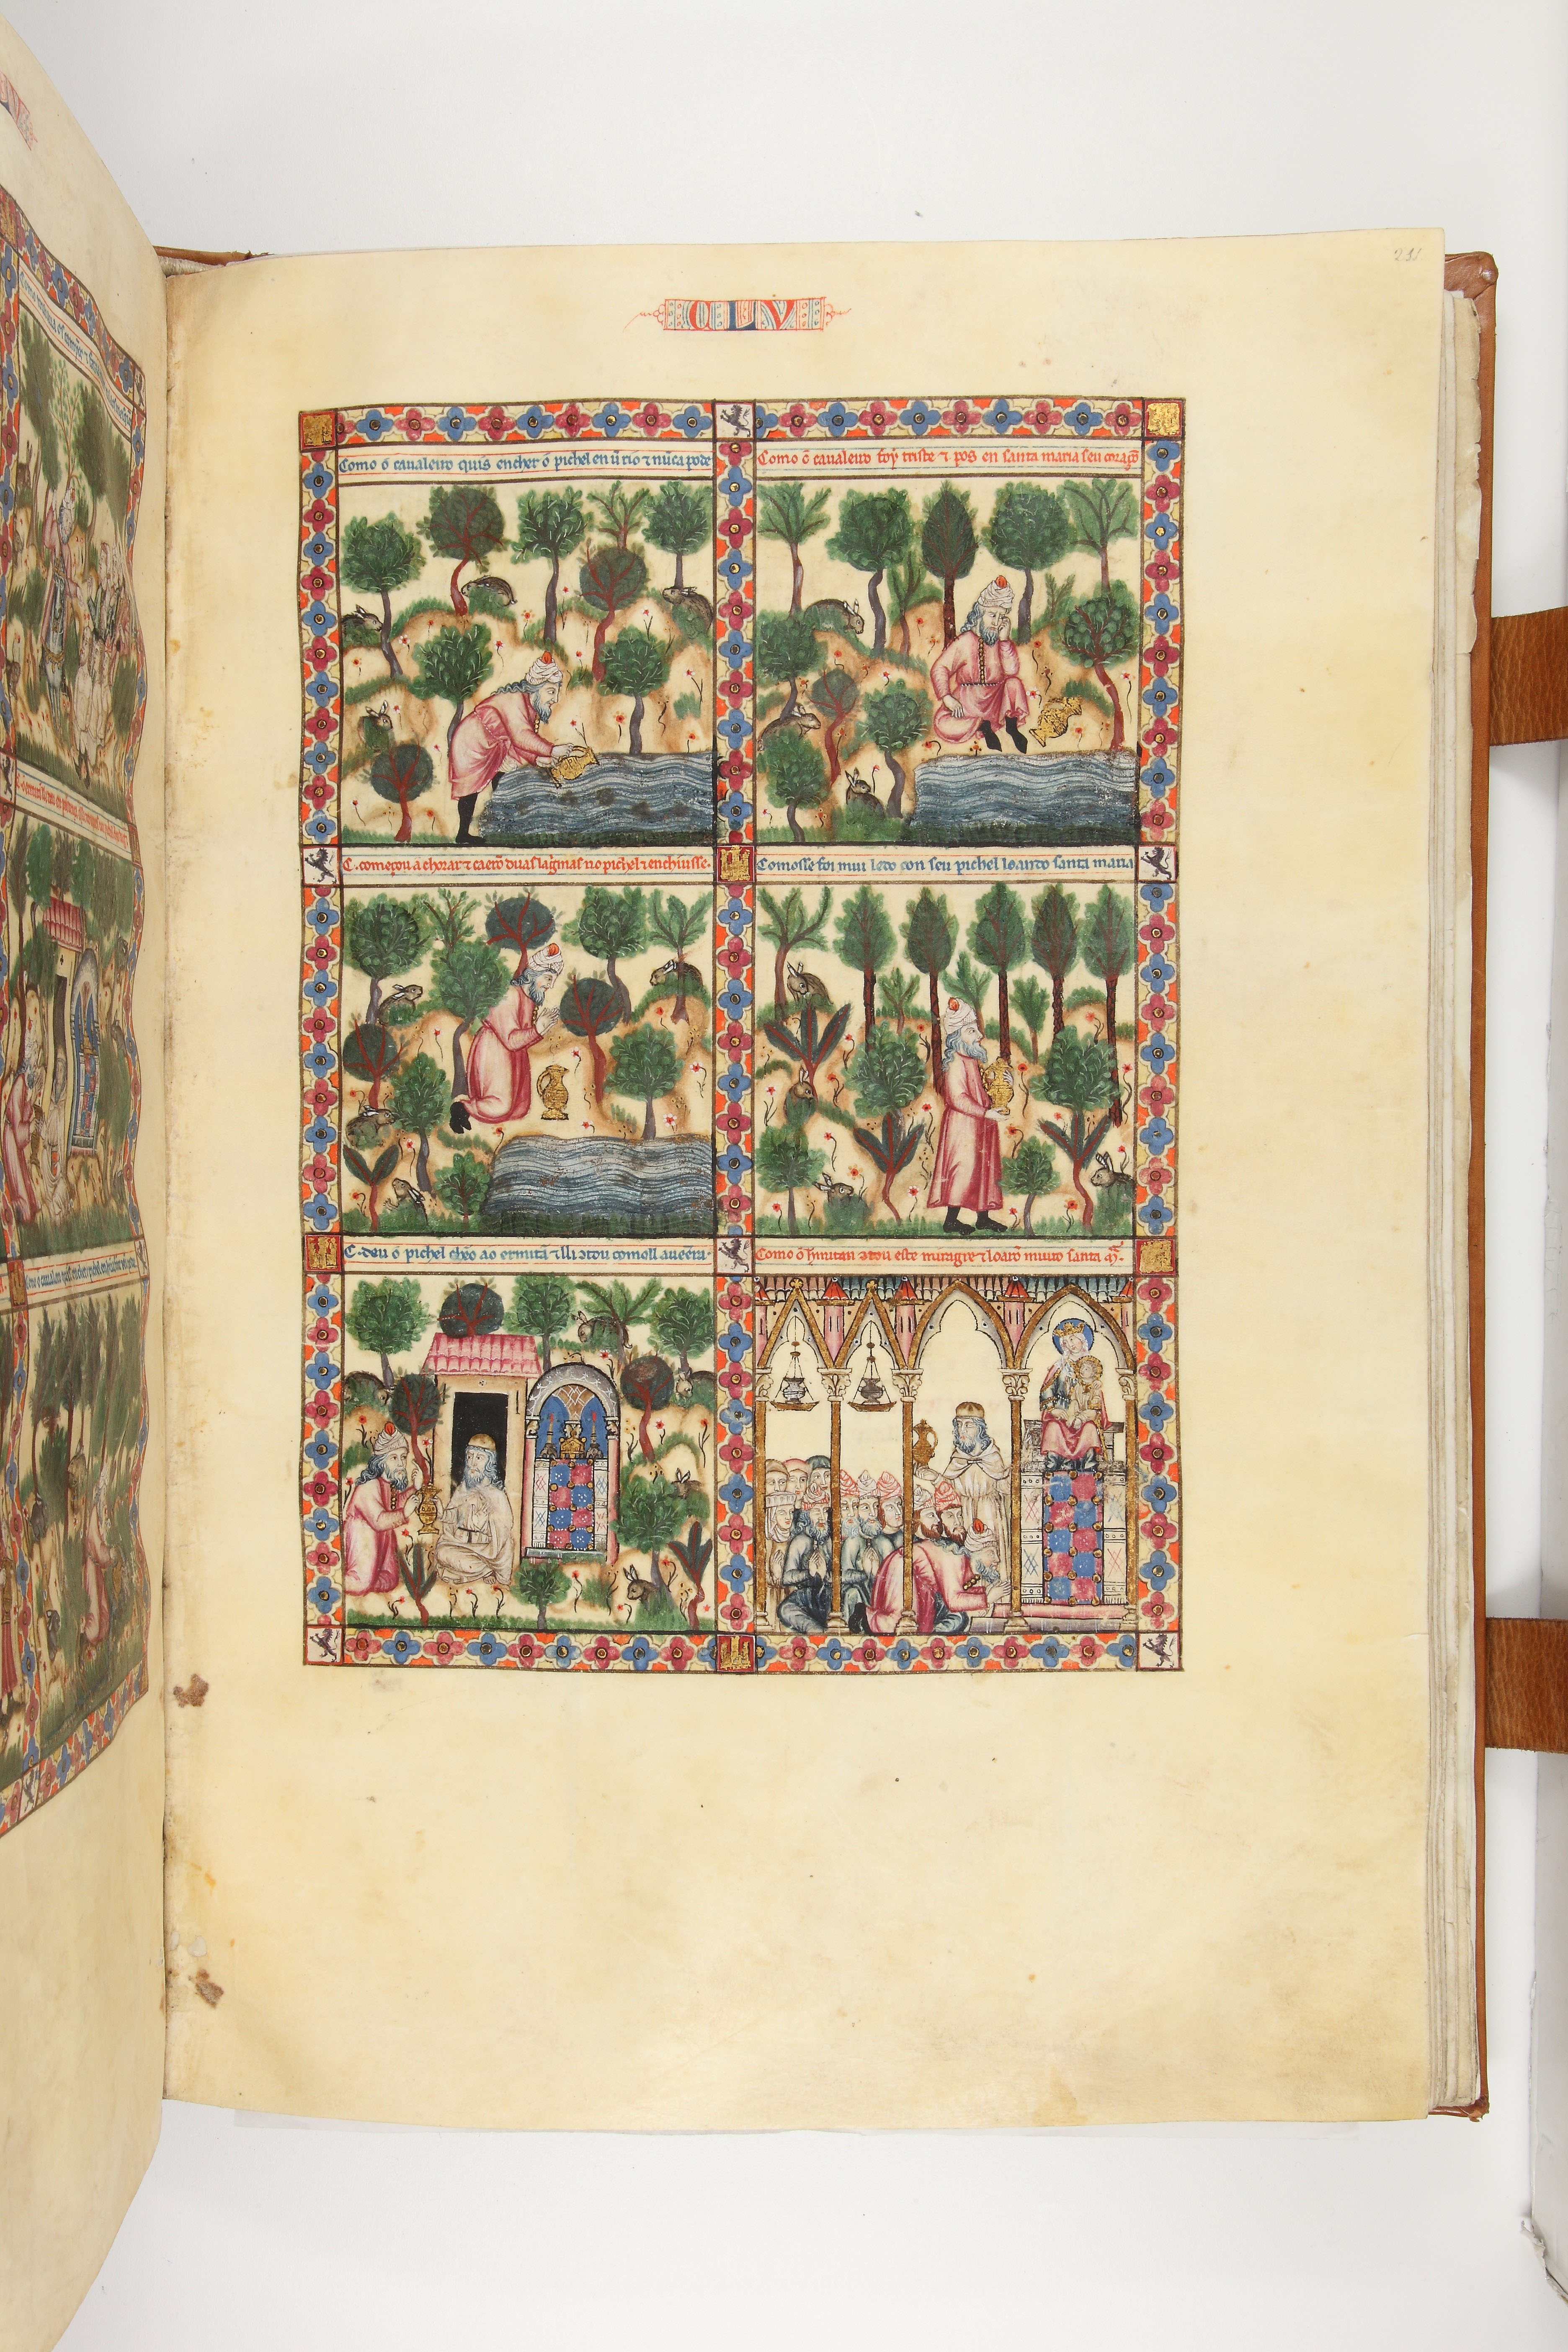 CLV
Como õ caualeiro quis encher õ pichel en ũ rio ⁊ nũca pode
Como õ caualeiro foy triste ⁊ pos en santa maria seu coraçõ
C. começou a chorar ⁊ caerõ duas lagrimas no pichel ⁊ enchiusse.
Comosse foi mui ledo con seu pichel loando santa maria
C. deu õ pichel chẽo ao ermitã ⁊ lli ↄtou comoll aueera.
Como õ ↄtou este miragre ⁊ loarõ muito santa mª.